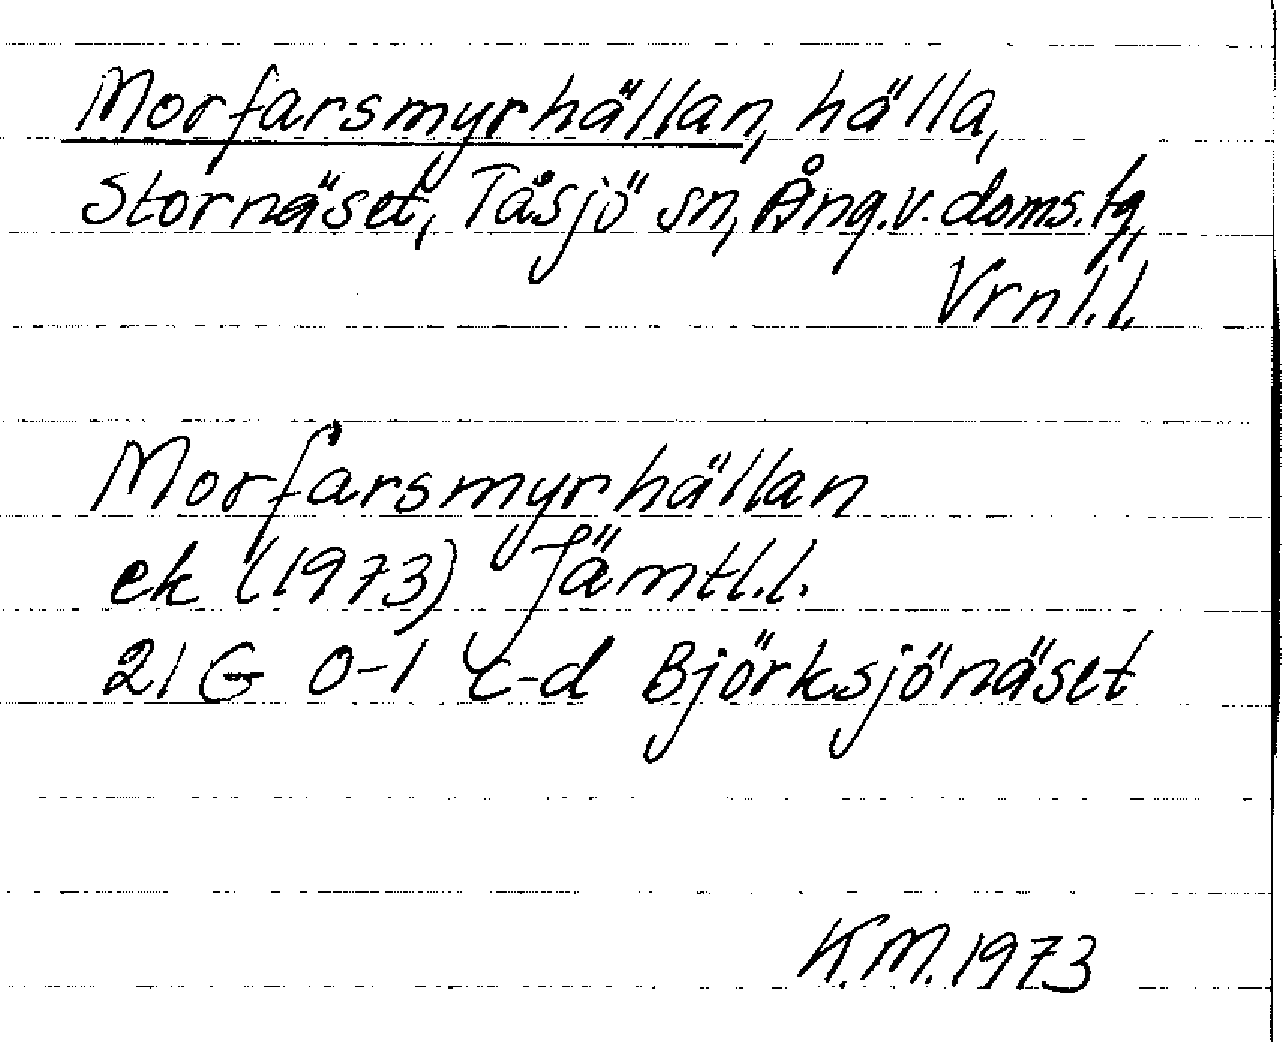 Morfarsmyrhällan, hälla,
Stornäset, Tåsjö sn, Ång.v. doms.tg,
Vrnl.l.
Morfarsmyrhällan
ek (1973) Jämtl.l.
21 G 0-1 c-d Björksjönäset
K.M. 1973